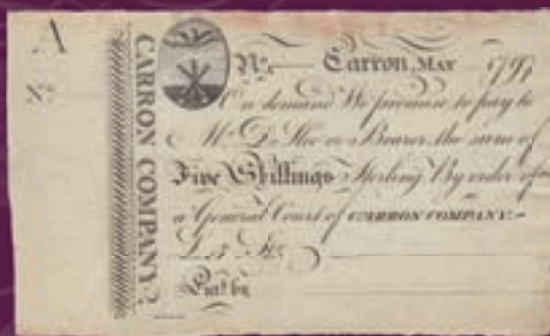 A
No.
CARRON COMPANY.
No. Carron, MAY 179
On demand We promise to pay to
Mr. D. or Bearer, the sum of
Five Shillings Sterling By order of
a General Court of CARRON COMPANY.
Ent. by